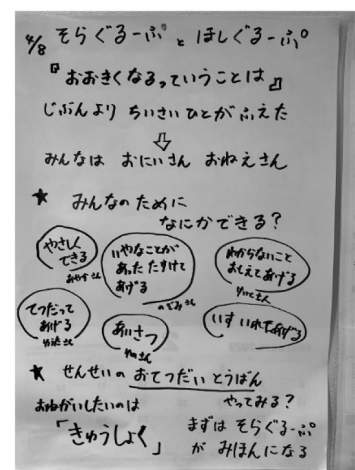 4/8 そらぐるーぷ と ほしぐるーぷ
『おおきくなるっていうことは』
じぶんより ちいさいひとが ふえた
⇩
みんなは おにいさん おねえさん
★ みんなのために
なにかできる?
やさしく
できる
いやなことが
あった たすけて
あげる
わからないこと
おしえてあげる
てつだって
あげる
あいさつ
いす いれてあげる
★ せんせいの おてつだい とうばん
やってみる?
おねがいしたいのは
「きゅうしょく」
まずは そらぐるーぷ
が みほんになる